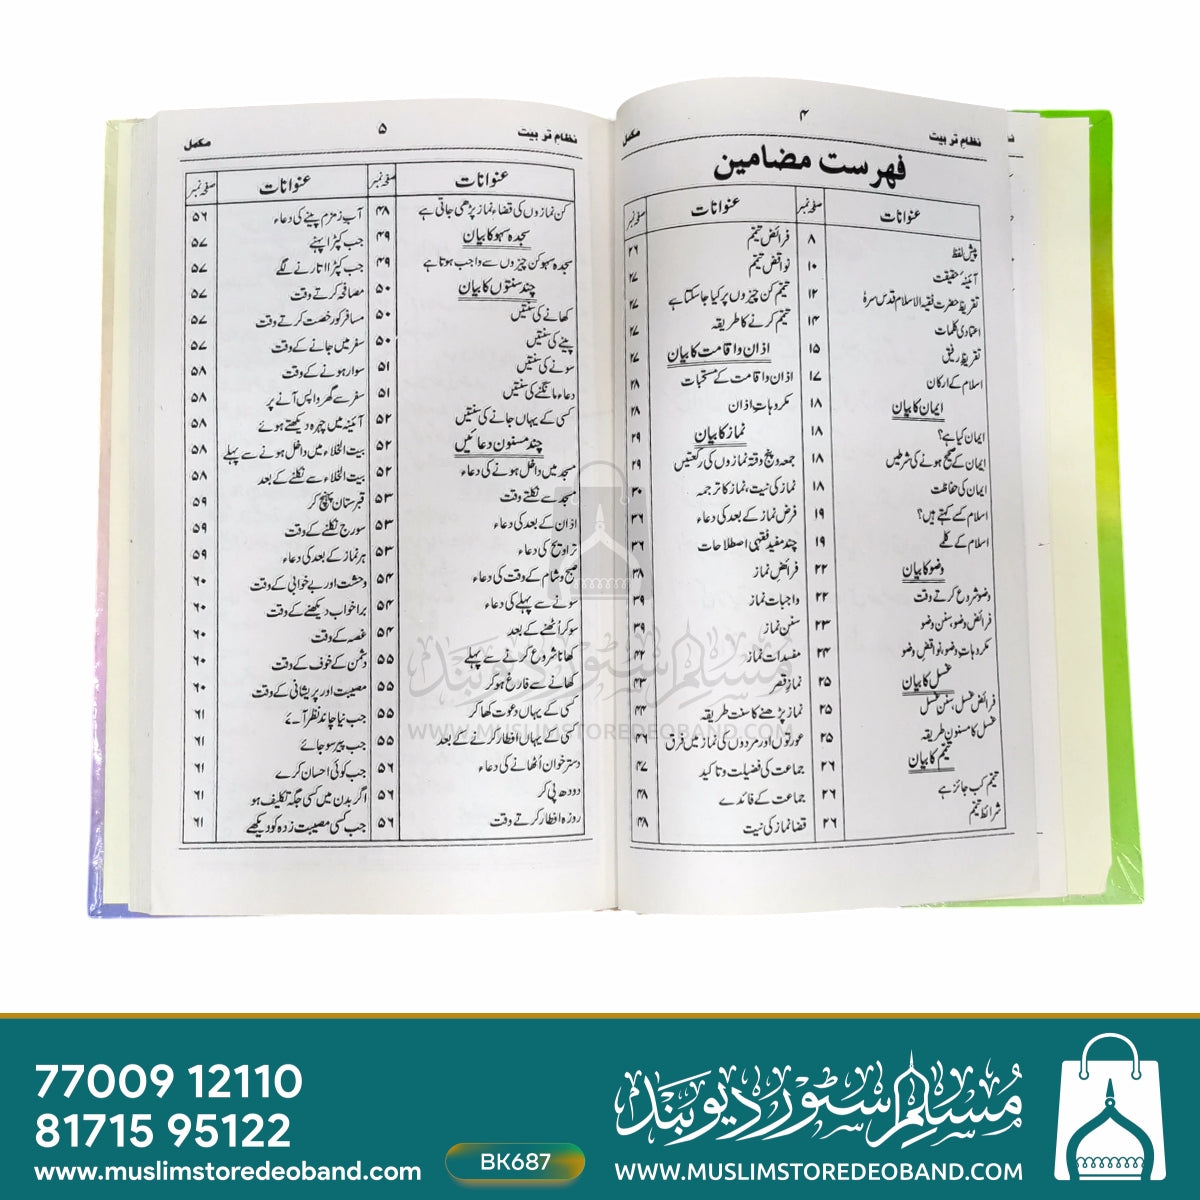 نظام تربیت
۴
مکمل
فہرست مضامین
عنوانات
صفحہ نمبر
پیش لفظ
۸
آئینۂ حقیقت
۱۰
تقریظ حضرت فقیہ الاسلام قدس سرہٗ
۱۲
اعتمادی کلمات
۱۴
تقریظ رفیق
۱۵
اسلام کے ارکان
۱۷
ایمان کا بیان
۱۸
ایمان کیا ہے؟
۱۸
ایمان کے صحیح ہونے کی شرطیں
۱۸
ایمان کی حفاظت
۱۸
اسلام کسے کہتے ہیں؟
۱۹
اسلام کے کلمے
۱۹
وضو کا بیان
۲۲
وضو شروع کرتے وقت
۲۲
فرائض وضو، سنن وضو
۲۳
مکروہات وضو، نواقض وضو
۲۴
غسل کا بیان
۲۵
فرائض غسل، سنن غسل
۲۵
غسل کا مسنون طریقہ
۲۵
تیمم کا بیان
۲۶
تیمم کب جائز ہے
۲۶
شرائط تیمم
۲۶
عنوانات
صفحہ نمبر
فرائض تیمم
۲۶
نواقض تیمم
۲۷
تیمم کن چیزوں پر کیا جاسکتا ہے
۲۷
تیمم کرنے کا طریقہ
۲۷
اذان واقامت کا بیان
۲۷
اذان واقامت کے مستحبات
۲۸
مکروہات اذان
۲۸
نماز کا بیان
۲۹
جمعہ و پنج وقتہ نمازوں کی رکعتیں
۲۹
نماز کی نیت، نماز کا ترجمہ
۳۰
فرض نماز کے بعد کی دعاء
۳۶
چند مفید فقہی اصطلاحات
۳۶
فرائض نماز
۳۸
واجبات نماز
۳۹
سنن نماز
۳۹
مفسدات نماز
۴۲
نماز قصر
۴۳
نماز پڑھنے کا سنت طریقہ
۴۴
عورتوں اور مردوں کی نماز میں فرق
۴۶
جماعت کی فضیلت و تاکید
۴۷
جماعت کے فائدے
۴۸
قضا نماز کی نیت
۴۸
نظام تربیت
۵
مکمل
عنوانات
صفحہ نمبر
کن نمازوں کی قضاء نماز پڑھی جاتی ہے
۴۸
سجدہ سہو کا بیان
۴۹
سجدہ سہو کن چیزوں سے واجب ہوتا ہے
۴۹
چند سنتوں کا بیان
۵۰
کھانے کی سنتیں
۵۰
پینے کی سنتیں
۵۰
سونے کی سنتیں
۵۱
دعاء مانگنے کی سنتیں
۵۱
کسی کے یہاں جانے کی سنتیں
۵۲
چند مسنون دعائیں
۵۲
مسجد میں داخل ہونے کی دعاء
۵۲
مسجد سے نکلتے وقت
۵۳
اذان کے بعد کی دعاء
۵۳
تراویح کی دعاء
۵۳
صبح وشام کے وقت کی دعاء
۵۴
سونے سے پہلے کی دعاء
۵۴
سوکر اُٹھنے کے بعد
۵۴
کھانا شروع کرنے سے پہلے
۵۵
کھانے سے فارغ ہوکر
۵۵
کسی کے یہاں دعوت کھاکر
۵۵
کسی کے یہاں افطار کرنے کے بعد
۵۵
دسترخوان اُٹھانے کی دعاء
۵۶
دودھ پی کر
۵۶
روزہ افطار کرتے وقت
۵۶
عنوانات
صفحہ نمبر
آب زمزم پینے کی دعاء
۵۶
جب کپڑا پہنے
۵۷
جب کپڑا اتارنے لگے
۵۷
مصافحہ کرتے وقت
۵۷
مسافر کو رخصت کرتے وقت
۵۷
سفر میں جانے کے وقت
۵۷
سوار ہونے کے وقت
۵۸
سفر سے گھر واپس آنے پر
۵۸
آئینہ میں چہرہ دیکھتے ہوئے
۵۸
بیت الخلاء میں داخل ہونے سے پہلے
۵۸
بیت الخلاء سے نکلنے کے بعد
۵۸
قبرستان پہنچ کر
۵۹
سورج نکلنے کے وقت
۵۹
ہر نماز کے بعد کی دعاء
۵۹
وحشت اور بے خوابی کے وقت
۶۰
برا خواب دیکھنے کے وقت
۶۰
غصہ کے وقت
۶۰
دشمن کے خوف کے وقت
۶۰
مصیبت اور پریشانی کے وقت
۶۰
جب نیا چاند نظر آئے
۶۱
جب پیر سوجائے
۶۱
جب کوئی احسان کرے
۶۱
اگر بدن میں کسی جگہ تکلیف ہو
۶۱
جب کسی مصیبت زدہ کو دیکھے
۶۱
مسلم سٹور دیوبند
WWW.MUSLIMSTOREDEOBAND.COM
77009 12110
81715 95122
www.muslimstoredeoband.com
BK687
مسلم سٹور دیوبند
WWW.MUSLIMSTOREDEOBAND.COM